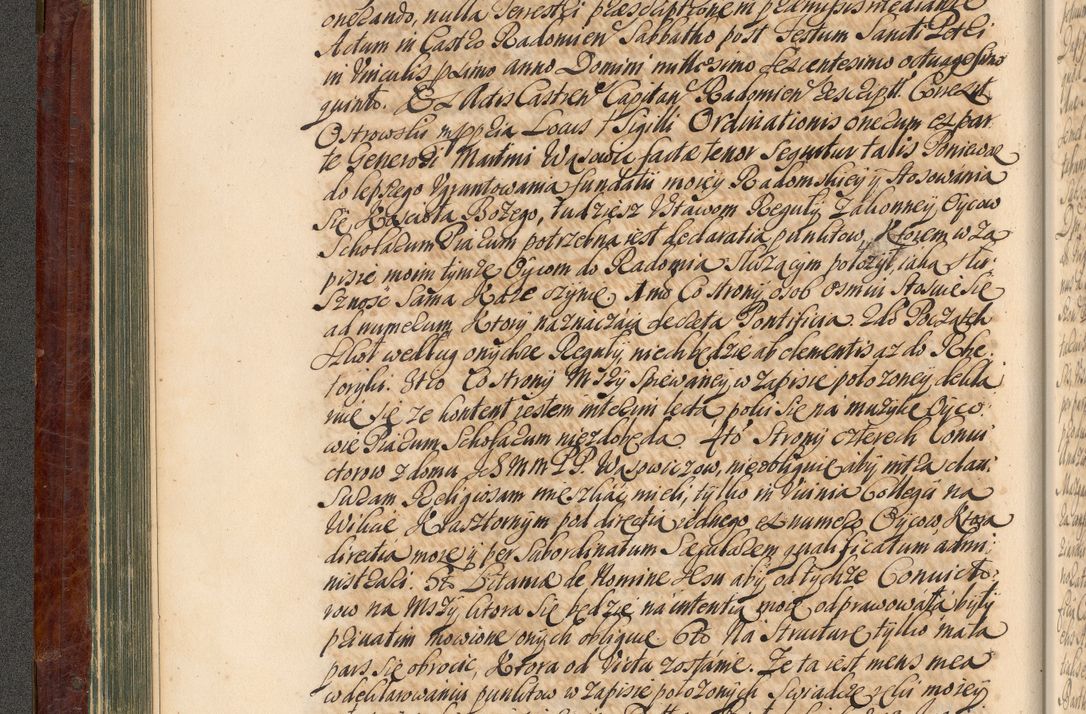 onerando, nulla Terrestri præscriptionem præmissis mediante
Actum in Castro Radomien Sabbatho post Festum Sancti Petri
in Vinculis primo anno Domini millesimo sexcentesimo octuagesimo
quinto. Ex Actis Castren Capitan Radomien descript Correxit
Ostrowski mppria Locus † Sigilli Ordinationis onerum ex par
te Generosi Martini Wąsowicz factæ tenor sequitur talis Poniewasz
do lepszego Vgruntowania fundatii moiey Radomskiey y stosowania
się Kościoła Bożego, tudziesz Vstawom Reguły Zakonney Oycow
Scholarum Piarum potrzebna iest declaratia punktow, Ktorem w za
pisie moim tymże Oycom do Radomia służącym położył, iaka słu
szność sama Każe czynię 1mo Co strony osob osmiu stosuię się
ad numerum Ktory naznaczaią decreta Pontificia. 2do Początek
szkoł według onychże Reguły, niech będzie ab elementis az do Rhe
toryki. 3tio Co strony Mszy spiewaney w zapisie położoney, dekla
ruię się ze kontent iestem interim lecta poki się na muzykę Oyco
wie Piarum Scholarum niezdobędą 4to Strony czterech Convi
ctorow z domu JchMm PP. Wąsowiczow, nieobliguię aby intra clau
suram Religiosam mieszkać mieli, tylko in Vicinia Collegii na
Wikcie Klasztornym pod directią iednego, ex numero Oycow Ktora
directia może y per subordinatum Sæcularem qualificatum admi
nistrari 5to Litaniæ de Nomine Jesu aby od tychże Convicto
row na Mszy ktora się będzie na intentią moię odprawowała były
privatim mowione onych obliguię 6to Na Structurę tylko mała
pars się obroci, Ktora od Victu zostanie. Ze ta iest mens mea
w deklarowaniu punktow w zapisie położonych Swiadczę ręki moiey